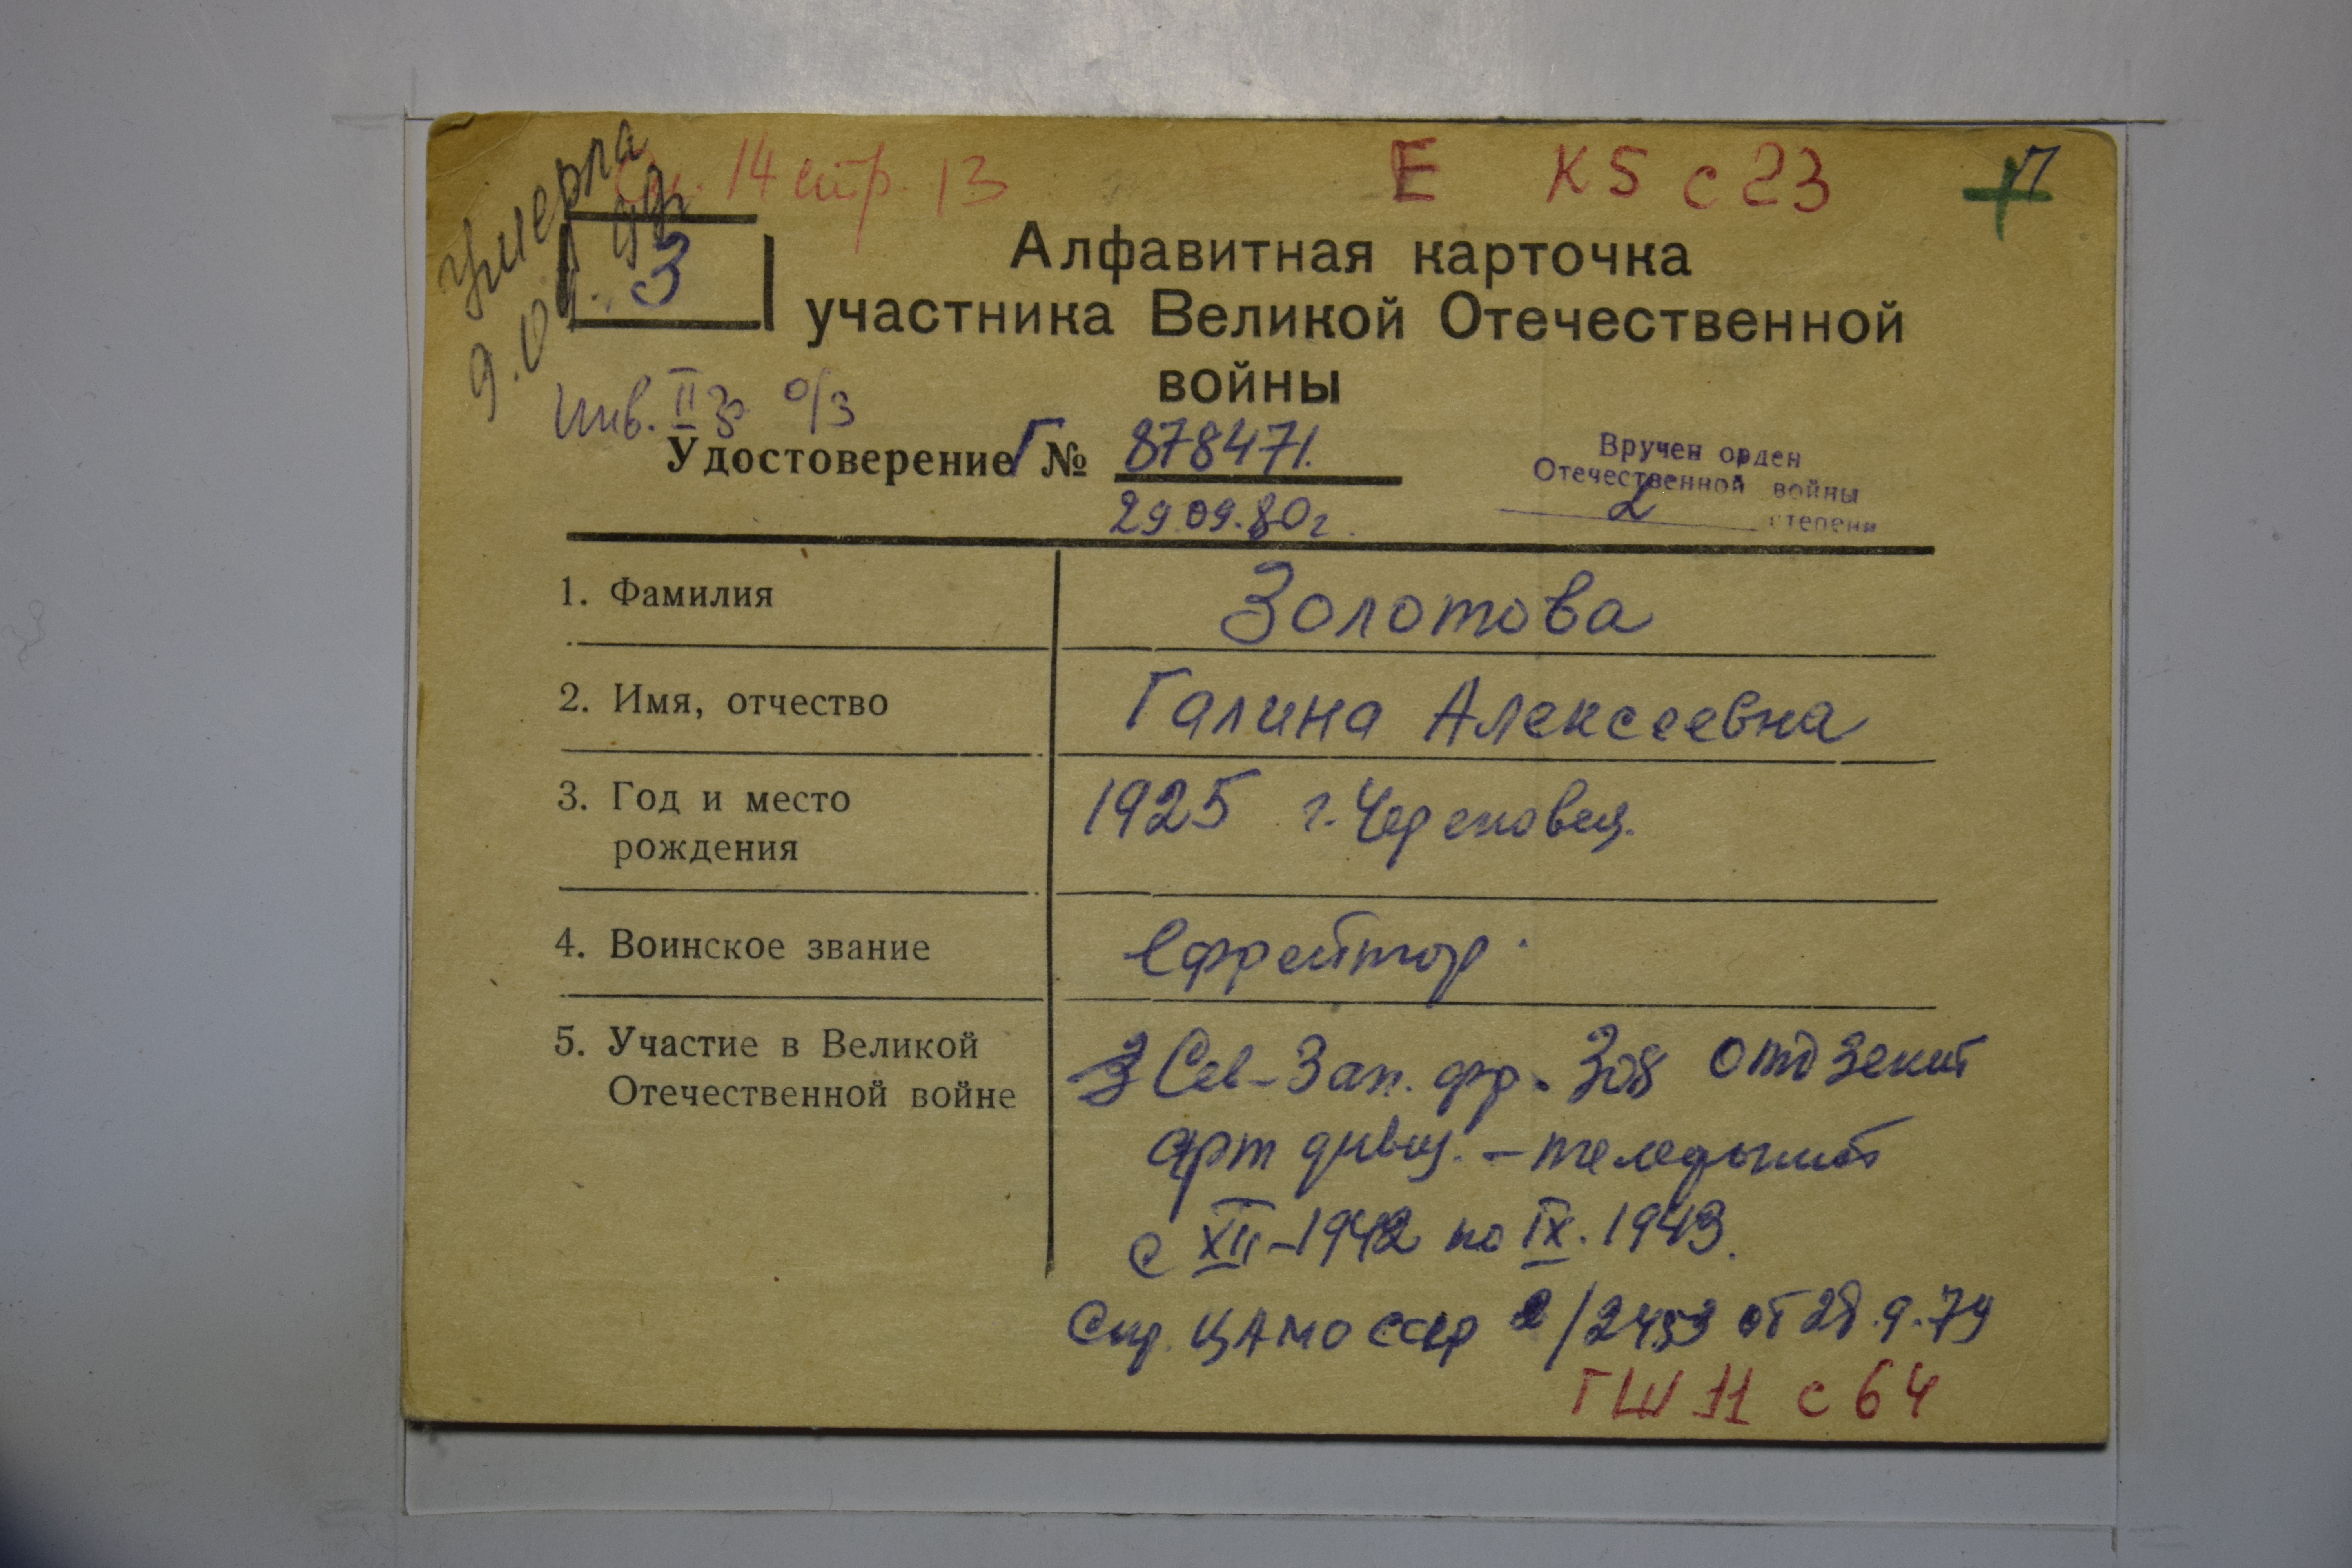 умерла
14 стр. 13
Е К5 с 23
П
3
Алфавитная карточка
участника Великой Отечественной
войны
инв. II гр о/з
Удостоверение Г № 878471.
29.09.80 г.
Вручен орден
Отечественной войны
2 степени
1. Фамилия Золотова
2. Имя, отчество Галина Алексеевна
3. Год и место 1925 г. Череповец.
рождения
4. Воинское звание ефрейтор
5. Участие в Великой Сев-Зап. фр. 308 отд зенит
Отечественной войне арт дивиз. -
с XII-1942 по IX. 1943.
Спр. ЦАМО СССР 2/2453 от 28.9.79
ГШ 11 с 64